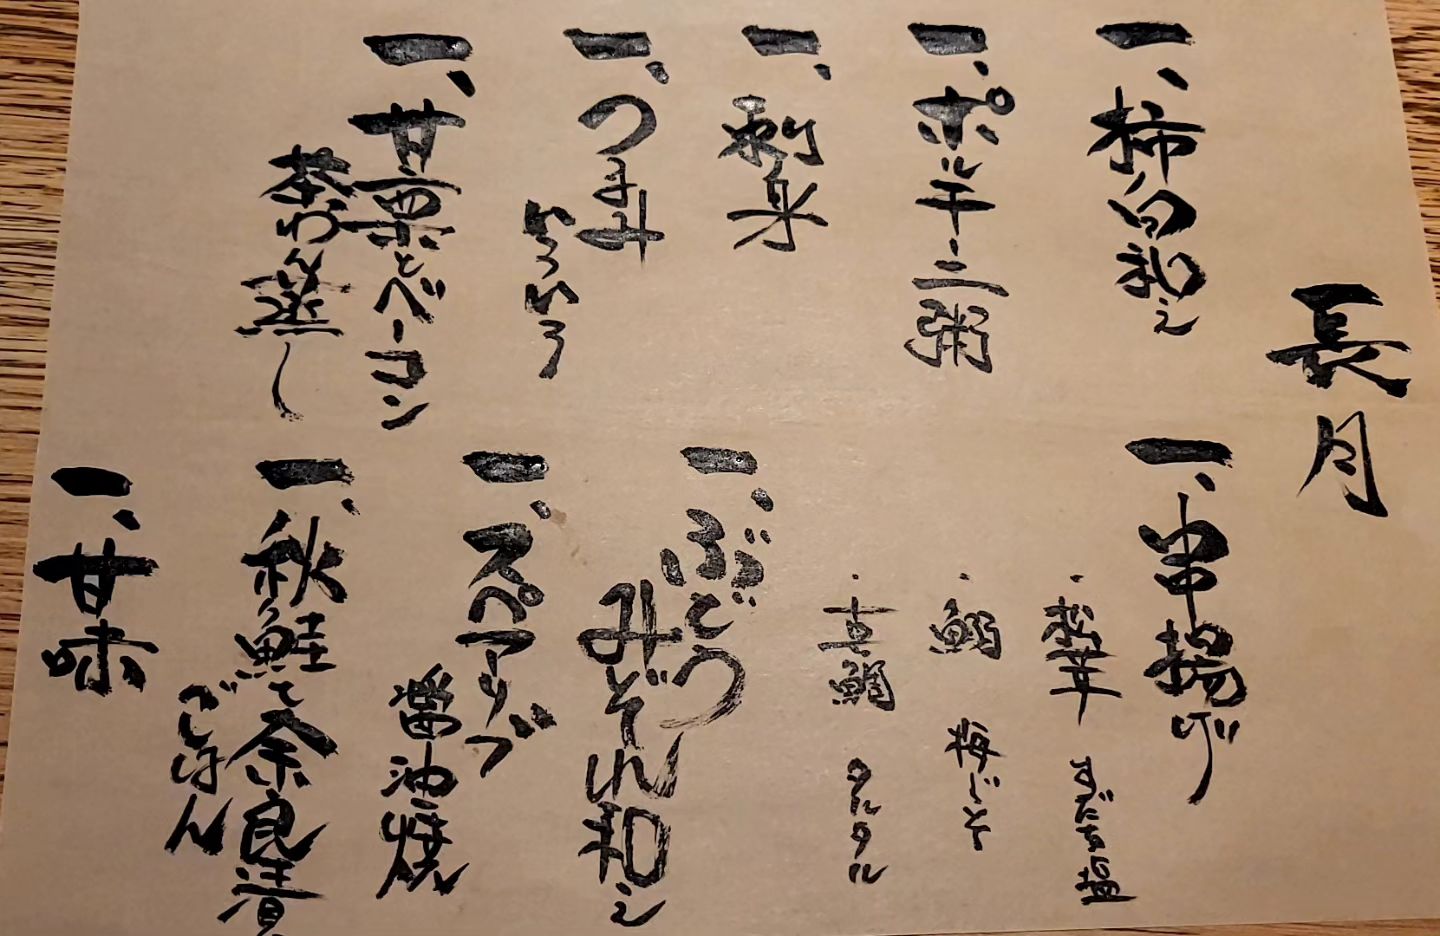 長月
一、柿白和え
一、ポルチーニ粥
一、刺身
一、つまみ
いろいろ
一、甘栗とベーコン
茶わん蒸し
一、串揚げ
・松茸 すだち塩
・鰯 梅じそ
・真鯛 タルタル
一、ぶどう
みぞれ和え
一、スペアリブ
醤油焼
一、秋鮭と奈良漬
ごはん
一、甘味